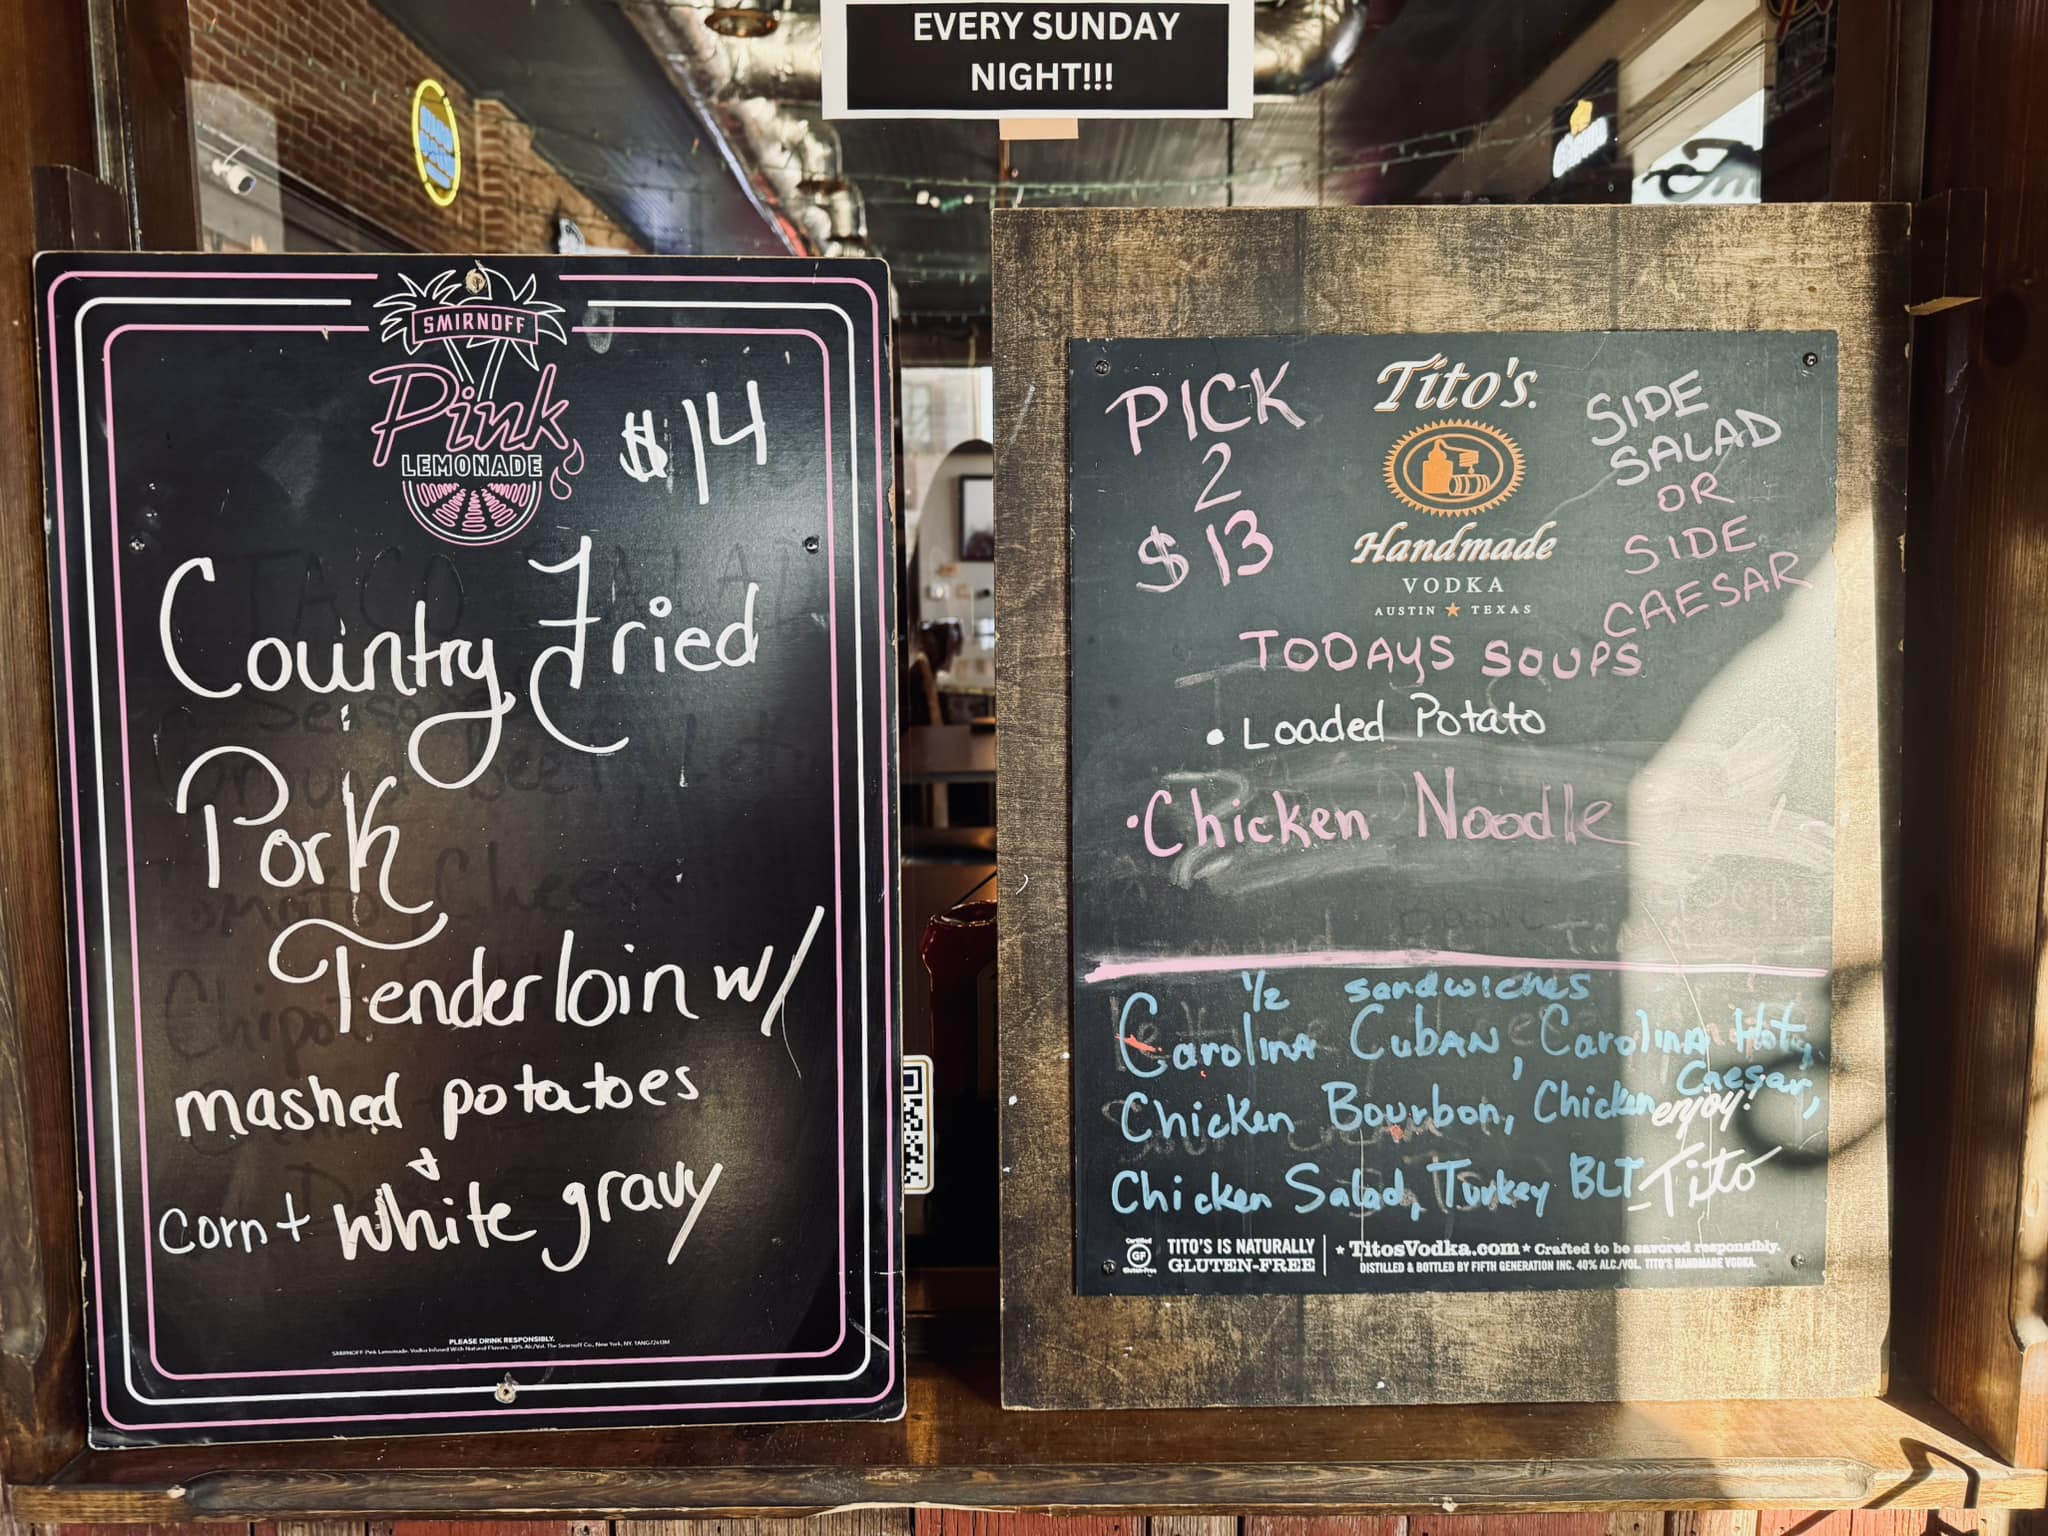 EVERY SUNDAY
NIGHT!!!
SMIRNOFF
Pink
LEMONADE
$14
Country Fried
Pork
Tenderloin w/
mashed potatoes
+
corn + white gravy
PLEASE DRINK RESPONSIBLY.
SMIRNOFF Pink Lemonade. Vodka Infused With Natural Flavors. 30% Alc/Vol. The Smirnoff Co., New York, NY.
PICK
2
$13
Tito's
Handmade
VODKA
AUSTIN ★ TEXAS
SIDE
SALAD
OR
SIDE
CAESAR
TODAYS SOUPS
• Loaded Potato
• Chicken Noodle
1/2 sandwiches
Carolina Cuban, Carolina Hot,
Chicken Bourbon, Chicken Caesar,
enjoy!
Chicken Salad, Turkey BLT
-Tito
Certified
GF
Gluten-Free
TITO'S IS NATURALLY
GLUTEN-FREE
★ TitosVodka.com ★ Crafted to be savored responsibly.
DISTILLED & BOTTLED BY FIFTH GENERATION INC. 40% ALC./VOL. TITO'S HANDMADE VODKA.